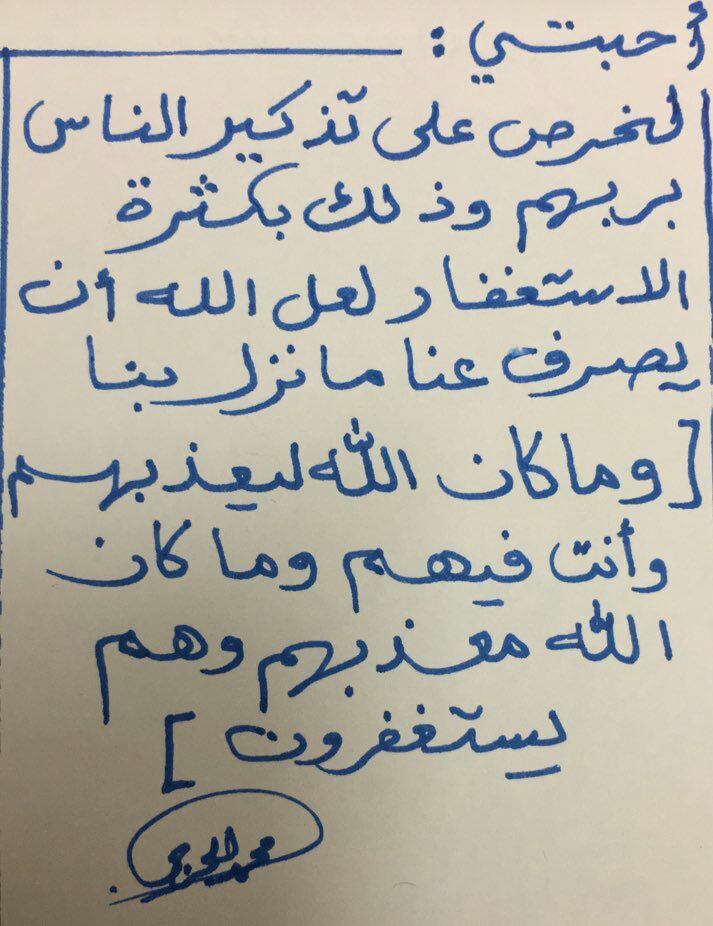 أحبتي :
لنحرص على تذكير الناس
بربهم وذلك بكثرة
الاستغفار لعل الله أن
يصرف عنا ما نزل بنا
[وما كان الله ليعذبهم
وأنت فيهم وما كان
الله معذبهم وهم
يستغفرون]
محمد